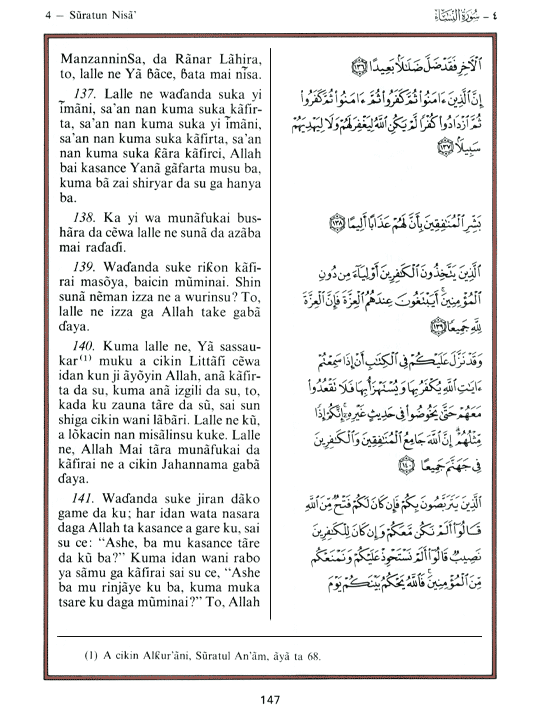 4 — Sũratun Nisã’
٤ – سُورَةُ النِّسَاءِ
ManzanninSa, da Rãnar Lãhira,
to, lalle ne Yã ɓãce, ɓata mai nĩsa.
137. Lalle ne waɗanda suka yi
ĩmãni, sa’an nan kuma suka kãfir-
ta, sa’an nan kuma suka yi ĩmãni,
sa’an nan suka kãfirta, sa’an
nan kuma suka ƙãra kãfirci, Allah
bai kasance Yanã gãfarta musu ba,
kuma bã zai shiryar da su ga hanya
ba.
138. Ka yi wa munãfukai bus-
hãra da cẽwa lalle ne sunã da azãba
mai raɗaɗi.
139. Waɗanda suke riƙon kãfi-
rai masõya, baicin mũminai. Shin
sunã nẽman izza ne a wurinsu? To,
lalle ne izza ga Allah take gabã
ɗaya.
140. Kuma lalle ne, Yã sassau-
kar(1) muku a cikin Littãfi cẽwa
idan kun ji ãyõyin Allah, anã kãfir-
ta da su, kumã anã izgili da su, to,
kada ku zauna tãre da sũ, sai sun
shiga cikin wani lãbãri. Lalle ne kũ,
a lõkacin nan misãlinsu kuke. Lalle
ne, Allah Mai tãra munãfukai da
kãfirai ne a cikin Jahannama gabã
ɗaya.
141. Waɗanda suke jiran dãko
game da ku; har idan wata nasara
daga Allah ta kasance a gare ku, sai
su ce: “Ashe, ba mu kasance tãre
da kũ ba?” Kuma idan wani rabo
ya sãmu ga kãfirai sai su ce, “Ashe
ba mu rinjãye ku ba, kuma muka
tsare ku daga mũminai?” To, Allah
ٱلۡأٓخِرِ فَقَدۡ ضَلَّ ضَلَٰلَۢا بَعِيدًا ١٣٦
إِنَّ ٱلَّذِينَ ءَامَنُواْ ثُمَّ كَفَرُواْ ثُمَّ ءَامَنُواْ ثُمَّ كَفَرُواْ
ثُمَّ ٱزۡدَادُواْ كُفۡرٗا لَّمۡ يَكُنِ ٱللَّهُ لِيَغۡفِرَ لَهُمۡ وَلَا لِيَهۡدِيَهُمۡ
سَبِيلَۢا ١٣٧
بَشِّرِ ٱلۡمُنَٰفِقِينَ بِأَنَّ لَهُمۡ عَذَابًا أَلِيمًا ١٣٨
ٱلَّذِينَ يَتَّخِذُونَ ٱلۡكَٰفِرِينَ أَوۡلِيَآءَ مِن دُونِ
ٱلۡمُؤۡمِنِينَۚ أَيَبۡتَغُونَ عِندَهُمُ ٱلۡعِزَّةَ فَإِنَّ ٱلۡعِزَّةَ
لِلَّهِ جَمِيعٗا ١٣٩
وَقَدۡ نَزَّلَ عَلَيۡكُمۡ فِي ٱلۡكِتَٰبِ أَنۡ إِذَا سَمِعۡتُمۡ
ءَايَٰتِ ٱللَّهِ يُكۡفَرُ بِهَا وَيُسۡتَهۡزَأُ بِهَا فَلَا تَقۡعُدُواْ
مَعَهُمۡ حَتَّىٰ يَخُوضُواْ فِي حَدِيثٍ غَيۡرِهِۦٓ إِنَّكُمۡ إِذٗا
مِّثۡلُهُمۡۗ إِنَّ ٱللَّهَ جَامِعُ ٱلۡمُنَٰفِقِينَ وَٱلۡكَٰفِرِينَ
فِي جَهَنَّمَ جَمِيعًا ١٤٠
ٱلَّذِينَ يَتَرَبَّصُونَ بِكُمۡ فَإِن كَانَ لَكُمۡ فَتۡحٞ مِّنَ ٱللَّهِ
قَالُوٓاْ أَلَمۡ نَكُن مَّعَكُمۡ وَإِن كَانَ لِلۡكَٰفِرِينَ
نَصِيبٞ قَالُوٓاْ أَلَمۡ نَسۡتَحۡوِذۡ عَلَيۡكُمۡ وَنَمۡنَعۡكُم
مِّنَ ٱلۡمُؤۡمِنِينَۚ فَٱللَّهُ يَحۡكُمُ بَيۡنَكُمۡ يَوۡمَ
(1) A cikin Alƙur’ãni, Sũratul An’ãm, ãyã ta 68.
147